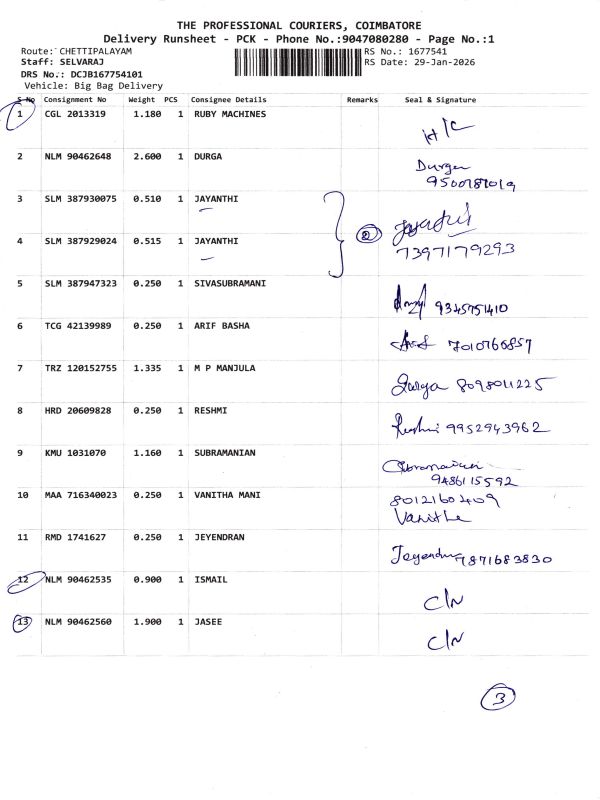 THE PROFESSIONAL COURIERS, COIMBATORE
Delivery Runsheet - PCK - Phone No.:9047080280 - Page No.:1
Route: CHETTIPALAYAM RS No.: 1677541
Staff: SELVARAJ RS Date: 29-Jan-2026
DRS No.: DCJB167754101
Vehicle: Big Bag Delivery
S No Consignment No Weight PCS Consignee Details Remarks Seal & Signature
1 CGL 2013319 1.180 1 RUBY MACHINES
H/C
2 NLM 90462648 2.600 1 DURGA
Durga
3 SLM 387930075 0.510 1 JAYANTHI
2
4 SLM 387929024 0.515 1 JAYANTHI
7397179293
5 SLM 387947323 0.250 1 SIVASUBRAMANI
9345751410
6 TCG 42139989 0.250 1 ARIF BASHA
7010766857
7 TRZ 120152755 1.335 1 M P MANJULA
Durga 8098011225
8 HRD 20609828 0.250 1 RESHMI
Reshmi 9952943962
9 KMU 1031070 1.160 1 SUBRAMANIAN
9486115592
10 MAA 716340023 0.250 1 VANITHA MANI
8012160409
Vanitha
11 RMD 1741627 0.250 1 JEYENDRAN
7871683830
12 NLM 90462535 0.900 1 ISMAIL
C/N
13 NLM 90462560 1.900 1 JASEE
C/N
3